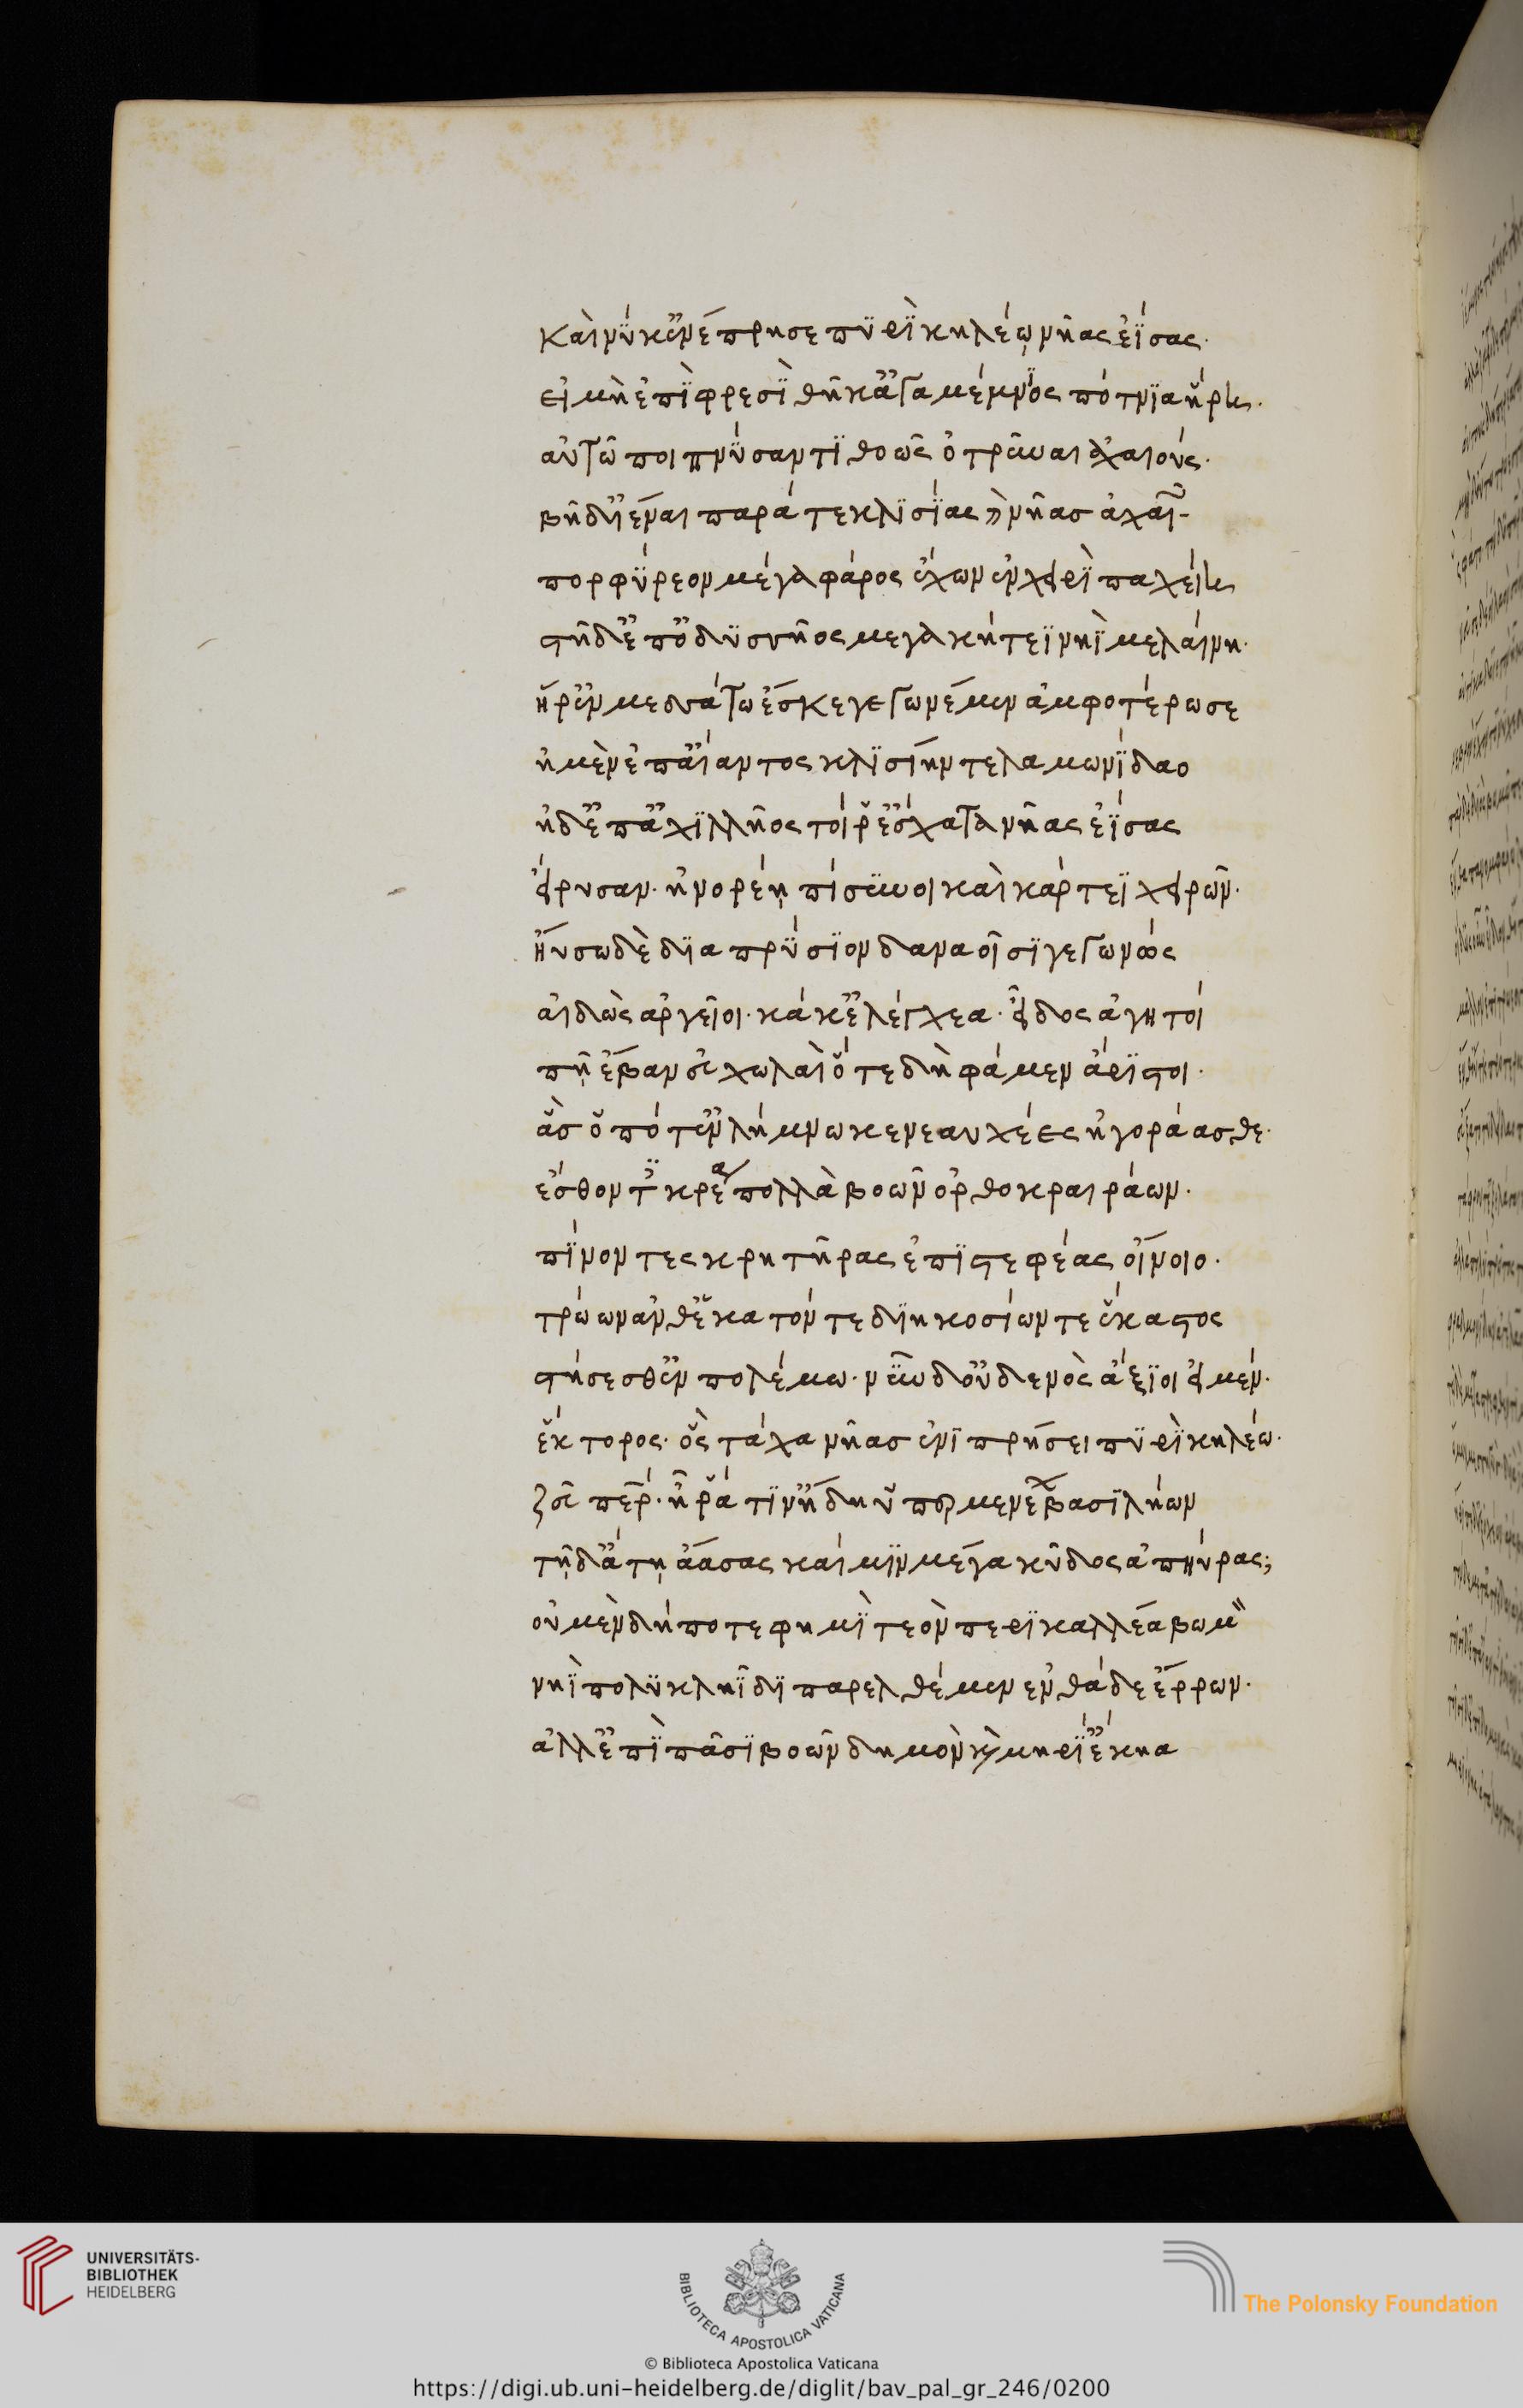 καὶ νύ κ' ἐνέπρησε πυρὶ κηλέω νῆας ἐΐσας·
εἰ μὴ ἐπὶ φρεσὶ θῆκ' ἀγαμέμνονος πότνια ἥρη·
αὐτῶ ποιπνύσαντι θοῶς ὀτρῦναι ἀχαιούς·
βῆ δ' ἰέναι παρά τε κλισίας καὶ νῆας ἀχαιῶν
πορφύρεον μέγα φάρος ἔχων ἐν χειρὶ παχείη
στῆ δ' ἐπ' ὀδυσσῆος μεγακήτεϊ νηῒ μελαίνη·
ἥ ῥ' ἐν μεσσάτω ἔσκε γεγωνέμεν ἀμφοτέρωσε
ἠ μὲν ἐπ' αἴαντος κλισίην τελαμωνίδαο
ἠδ' ἐπ' ἀχιλλῆος τοί ῥ' ἔσχατα νῆας ἐΐσας
εἴρυσαν· ἠνορέῃ πίσυνοι καὶ κάρτεϊ χειρῶν·
ἤϋσω δὲ διαπρύσιον δαναοῖσι γεγωνώς
αἰδὼς ἀργεῖοι· κάκ' ἐλέγχεα· εἶδος ἀγητοί
πῆ ἔβαν εὐχωλαὶ ὅτε δὴ φάμεν ἄριστοι·
ἃς ὁπότ' ἐν λήμνω κενεαυχέες ἠγοράασθε·
ἔσθοντ' κρέα πολλὰ βοῶν ὀρθοκραιράων·
πίνοντες κρητῆρας ἐπιστεφέας οἴνοιο·
τρώων ἄνθ' ἑκατόν τε διηκοσίων τε ἕκαστος
στήσεσθ' ἐν πολέμω· νῦν δ' οὐδ' ενὸς ἄξιοι εἰμεν·
ἕκτορος· ὃς τάχα νῆας ἐνιπρήσει πυρὶ κηλέω·
ζεῦ πέρ· ἦ ῥά τιν' ἤδη ὑπερμενέων βασιλήων
τῆδ' ἄτη ἄασας καί μιν μέγα κῦδος ἀπηύρας;
οὐ μὲν δή ποτε φημὶ τεὸν περικαλλέα βωμὸν
νηῒ πολυκληῗδι παρελθέμεν ενθάδε ἔρρων·
ἀλλ' ἐπὶ πᾶσι βοῶν δημὸν καὶ μηρί' ἔκηα
UNIVERSITÄTS-
BIBLIOTHEK
HEIDELBERG
BIBLIOTECA APOSTOLICA VATICANA
The Polonsky Foundation
© Biblioteca Apostolica Vaticana
https://digi.ub.uni-heidelberg.de/diglit/bav_pal_gr_246/0200